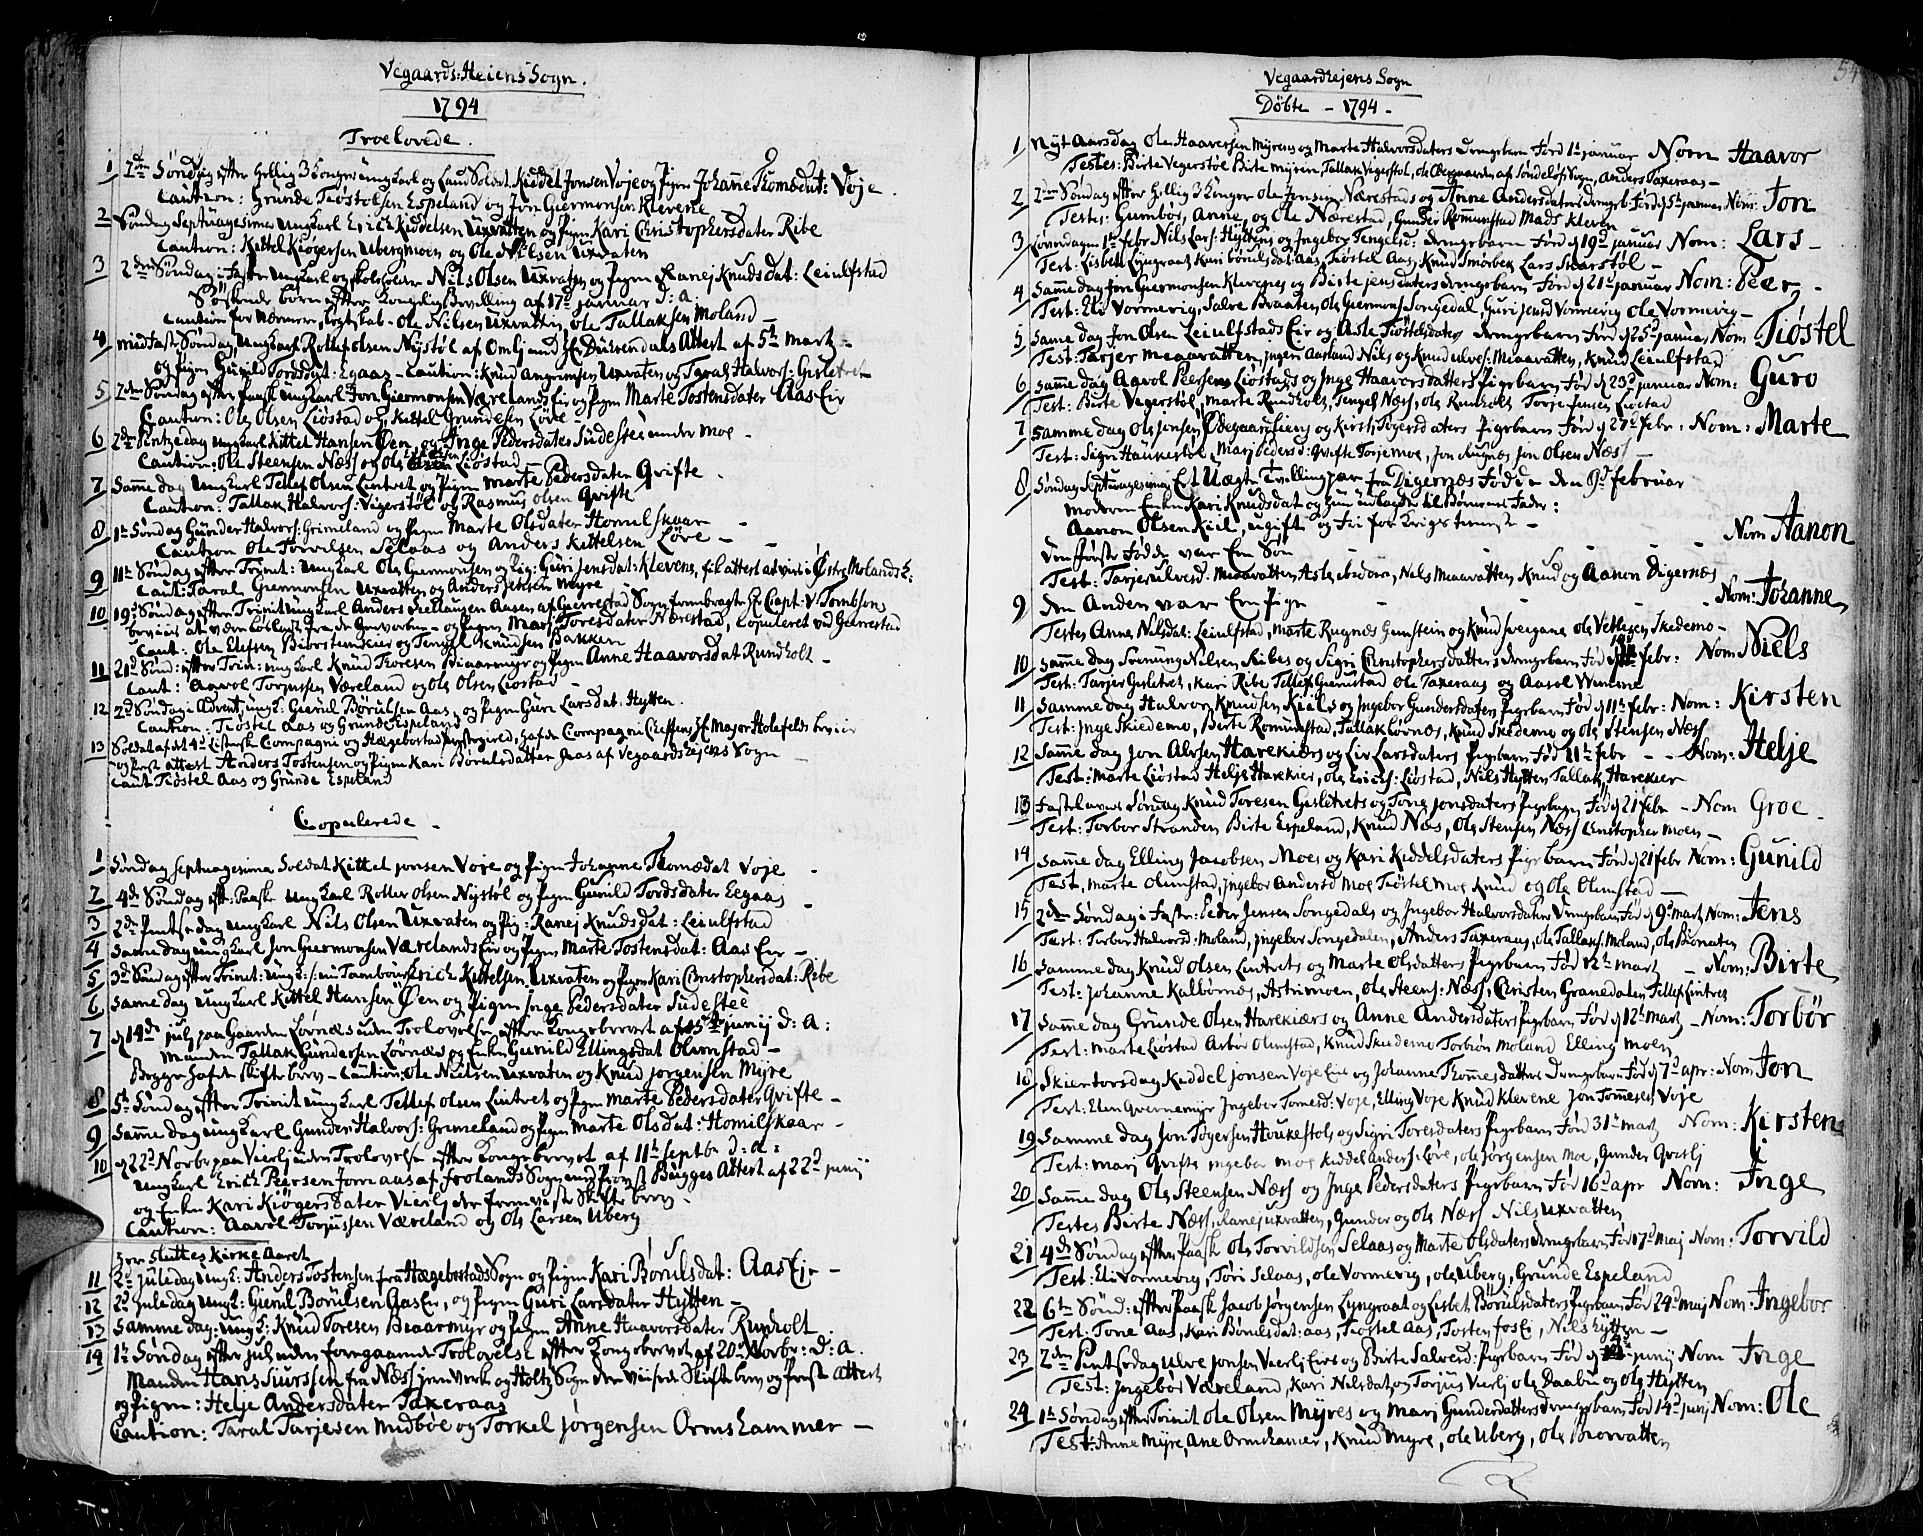 Vegaards Heiens Sogn.
1794
Troelovede.
1 2den Søndag efter Hellig 3 Konger ungkarl og Land Soldat Kiddel Jonsen Voje og Pigen Johanne Thomædat: Voje
Caution: Grunde Tiøstolsen Espeland og Jon Giermonsen Klevene
2 Søndag Septuagesima Ungkarl Erich Kiddelsen Uxvatten og Pigen Kari Christophersdater Ribe
Caution: Kittel Kiogersen Ubergmoen og Ole Nilsen Uxvaten
3 2den Søndag i Faste Ungkarl og Skoleholder Niels Olsen Uxvatten og Pigen Ranej Knudsdat: Leiulfstad
Søskende børn efter Kongelig Bevilling af 17d januar d: a.
Caution for nærmere Slegtskab - Ole Nilsen Uxvatten, Ole Tallaksen Moland -
4 midfaste Søndag, Ungkarl Rollef Olsen Nystøl af Omlj med Hr Duurendals Attest af 5te Martz -
og Pigen Gunild Tordsdat: Egaas - Caution: Knud Angrimsen Uxvaten og Taral Halvors: Gusletret
5 2den Søndag efter Paask Ungkarl Jon Giermonsen Værelands Eir og Pigen Marte Tostensdater Aas Eir
Caution: Ole Olsen Liøstad og Kittel Grundesen Løve -
6 2den Pintzedag Ungkarl Kittel Hansen Øen og Inge Pedersdater Sudestee under Moe -
Caution: Ole Steensen Næss og Ole Liøstad
7 Samme dag Ungkarl Tellef Olsen Lintret og Pigen Marte Pedersdater Qvifte
Caution: Tallak Halvors: Vigerstøl og Rasmus Olsen Qvifte
8 1te Søndag Gunder Halvors: Grimeland og Pigen Marte Olsdater Homelskaar -
Caution Ole Torvelsen Selaas og Anders Kittelsen Løve -
9 11te Søndag efter Trinit: Ungkarl Ole Giermonsen og Pig: Guri Jensdat: Klevens, fik attest at vies i Østre Molands K:
Caut: Taral Giermonsen Uxvatten og Anders Jensen Myre
10 19d Søndag efter Trinit Ungkarl Anders Sellaugen Aasen af Gierrestad Sogn frembragte Hr Capt: v. Tombsons
beviis at være løsladt fra de Geworbne - og Pigen Marj Toresdater Nærestad, Copuleret ved Gierrestad
Caut: Ole Elefsen Biørstemkier og Tengel Knudsen Bakken
11 21d Sønd: efter Trin: ungkarl Knud Thoresen Biaarmyr og Pigen Anne Haavorsdat Rundholt -
Caut: Aavol Torjussen Væreland og Ole Olsen Liøstad -
12 2d Søndag i Advent, ung: Giærul Børulsen Aas, og Pigen Guri Larsdat: Hytten.
Caution: Tiøstel Aas og Grunde Espeland
13 Soldat af det 4d Listersk Compagni og Hægebostad Præstegield, hafde Compagni Cheffens Hr Major Holfeldts beviis
og Præst attest Anders Tostensen og Pigen Kari Børulsdatter Aas af Vegaardsheiens Sogn -
Caut: Tiøstel Aas og Grunde Espeland
Copulerede -
1 Søndag septuagesima Soldat Kittel Jonsen Voje og Pigen Johanne Thomædat Voje -
2 4de Søndag eft: Paask Ungkarl Rollef Olsen Nystøl og Pigen Gunild Tordsdater Eegaas -
3 2den Pintsedag Ungkarl Nils Olsen Uxvaten og Pig: Ranej Knudsdat: Leiulfstad
4 samme dag ung karl Jon Giermonsen Værelands Eir og Pigen Marte Tostensdat: Aas Eir -
5 3d Søndag efter Trinit: Ungk:/:en Tambour:/ Erich Kittelsen Uxvaten og Pigen Kari Christophersdat: Ribe
6 samme dag Ung karl Kittel Hansen Øen og Pigen Inge Pedersdater Sudestee
7 d 14de julj paa Gaarden Lørnæs uden Trolovelse efter Kongebrevet af 15de junij d: a:
Manden Tallak Gundersen Lørnæs og Enken Gunild Ellingsdat Olmstad -
Begge hafde skifte brev - Caution: Ole Nielsen Uxvaten og Knud Jorgensen Myre
8 5te Søndag efter Trinit Ung karl Tellef Olsen Lintret og Pigen Marte Pedersdater Qvifte -
9 Samme dag Ung karl Gunder Halvors: Grimeland og Pigen Marte Olsdat: Homilskaar -
10 d 22d Novbr paa Vierlj uden Trolovelse efter Kongebrevet af 11te Septbr d: a:
Ungkarl Erich Peersen Jorn aas af Frolands Sogn med Provst Bugges Attest af 22d junij
og Enken Kari Kiøgersdater Vierlj der fremviiste Skifte brev -
Caution: Aavol Torjussen Væreland og Ole Larsen Uberg
Her sluttes Kirke Aaret
11 2d juledag ungk: Anders Tostensen fra Hægebostads Sogn og Pigen Kari Børulsdat: Aas Eje -
12 2d juledag Ungk: Gierul Borulsen Aas Eie, og Pigen Guri Larsdater Hytten -
13 samme dag: Ungk: Knud Toresen Biaarmyr og Pigen Anne Haavorsdater Rundholt
14 1te Søndag efter juul uden foregaaende Trolovelse efter Kongebrevet af 20d Novbr: d: a.
Manden Hans Siurssen fra Næss jernverk og Holtz Sogn der viisede Skifte brev og Præste Attest
og Pigen: Helje Andersdater Taxeraas
Caution: Taral Tarjesen Mudboe og Torkel Jørgensen Ormshammer -
Vegaardhejens Sogn
Døbte - 1794 -
54
1 Nyt Aarsdag Ole Haaversen Myrens og Marte Halvorsdaters drengebarn Fød 1te januar Nom Haavor
Testes: Birte Vegerstøl Birte Myren, Tallak Vegerstøl, Ole Obergaarden af Søndeløfs Sogn, Anders Taxeraas -
2 2den Søndag efter Hellig 3 Konger Ole Jonsen Nærestads og Anne Andersdaters drengeb: Fød d 5te januar Nom: Jon
Testes: Gumbør, Anne, og Ole Nærestad, Gunder Romunstad Mads Kleven
3 Lønverdagen 1te febr Nils Lars: Hyttens og Ingebor Tengelsd: drengebarn Fød d 19d januar Nom: Lars -
Test: Lisbet Lyngraat Kari børulsdat: Aas, Tiøstel Aas, Knud Smørbek Lars Stærstøl -
4 samme dag Jon Giermonsen Klevenes og Birte Jensdaters drengebarn Fød d 21d januar Nom: Peer -
Test: Eli Vormevig, Salve Braaten, Ole Giermons: Songedal, Guri Jensd Vormevig Ole Vormevig -
5 samme dag Jon Olsen Leiulfstads Eir og Asle Tiøstelsdater drengebarn Fød d 25d januar Nom Tiøstel
Test: Tarjer Meaavatten, Ingeri Aasland Nils og Knud Ulves: Meaavatten, Knud Leiulfstad
6 samme dag Aavol Peersens Liøstads og Inge Haavorsdatters Pigebarn Fød d 23d januar Nom: Guro
Test: Birte Vegerstøl, Marte Rundholt, Tengel Næss, Ole Rundholt Torje Jensen Liøstad
7 samme dag Ole Jonsen Ødegaardsens og Kirsti Togersdaters Pigebarn Fød d 27de febr: Nom: Marte
Test: Signi Haukestøl, Marj Pedersd: Qvifte Torje Moe, Jon Rugnes Jon Olsen Næss -
8 Søndag Septuagesima Et Uægte Tvillingpar fra Digernæs Fødde den 9d februar
moderen Enken Kari Knudsdat og hun udlagde til Børnenes Fader:
Aanon Olsen Kiil, ugift og Fri for Krigstienste -
den første Fødde var En Søn - - - - Nom Aanon
Test: Tarjer Ulvesd. Meaavatten, Asle ibidem, Nils Meaavatten, Knud og Aanon Digernæs
9 den Anden var En Pige - - - Nom: Johanne
Testes Anne Nilsdat: Leiulfstad, Marte Rugnæs Gunstein og Knud Sveigane Ole Vetlesen Skedemo -
10 samme dag Svenung Nilsen Ribes og Signi Christophersdatters drengebarn Fød febr: Nom: Niels
Test: Tarjer Gusletret, Kari Ribe Tellef Gierrustad Ole Taxeraas og Aavol Wenerne
11 samme dag Halvor Knudsen Kiils og Ingebor Gundersdaters Pigebarn Fød d 11te febr: Nom: Kirsten
Test: Inge Skiedemo, Birte Romunstad, Tallak Lovnæs, Knud Skedemo og Ole Stensen Næss
12 samme dag Jon Alvsen Harekiærs og Liv Larsdaters Pigebarn Fød 11te febr - - Nom: Helje
Test: Marte Liøstad Helje Harekier, Ole Erichs: Liøstad, Nils Hytten Tallak Harekier
13 Fastelavens Søndag Knud Toresen Gusletrets og Tone Jonsdaters Pigebarn Fød d 21 febr - Nom Groe -
Test: Torbor Stranden Birte Espeland, Knud Næs, Ole Stensen Næss Christopher Moen -
14 samme dag Elling Jacobsen Moes og Kari Kiddelsdaters Pigebarn Fød d 21 febr Nom: Gunild
Test, Marte Olmstad, Ingebor Andersd Moe Tiøstel Moe Knud og Ole Olmstad -
15 2den Søndag i Faste: Peder Jensen Songedals og Ingebor Halvorsdaters drengebarn Fød d 9d Martz Nom: Jens
Test: Torbor Halvorsd: Moland, Ingebor Songedalen, Anders Taxeraas, Ole Tallaks: Moland, Ole Biorvaten
16 samme dag Knud Olsen Lintrets og Marte Olsdatters Pigebarn Fød 12te Martz - Nom: Birte
Test: Johanne Kalbørnæs, Astri Moen, Ole Steens: Næss, Christen Granedalen Tellef Lintret
17 samme dag Grunde Olsen Harekiærs og Anne Andersdaters Pigebarn Fød d 12te Martz - Nom: Torbør
Test: Marte Liøstad Asbør Olmstad, Knud Skiedemo Torbiøn Moland Elling Moen
18 Skiertorsdag Kiddel Jonsen Voje Eie og Johanne Thommesdatters drengebarn Fød d 7d apr: Nom Jon
Test: Elen Qvernemyr Ingebor Tomesd: Voje, Elling Voje Knud Klevene Jon Tommess: Voje
19 Samme dag Jon Togersen Houkestols og Signi Toresdaters Pigebarn Fød 31te Martz Nom: Kirsten
Test: Marj Qvifte Ingebor Moe Kiddel Anders: Løve, Ole Jørgensen Moe, Gunder Qverlj
20 Samme dag Ole Steensen Næss og Inge Pedersdaters Pigebarn Fød 16d apr Nom: Inge
Testes Birte Næss, Ranej Uxvatten, Gunder og Ole Næss Nils Uxvatten
21 4de Søndag efter Paask Ole Torvildsen Selaas og Marte Olsdaters drengebarn Fød 17d Maj Nom: Torvild
Test: Eli Vormevig, Tori Selaas, Ole Vormevig, Ole Uberg, Grunde Espeland
22 6te Sønd: efter Paask Jacob Jørgensen Lyngraat og Lisbet Børulsdaters Pigebarn Fød 24d Maj Nom: Ingebor
Test: Tone Aas, Kari Børulsdat: Aas, Tiøstel Aas, Tosten Fos Ei, Nils Hytten -
23 2den Pintsedag Ulve Jonsen Vierlj Eies og Birte Salvesd: Pigebarn Fød d junij Nom Inge
Test: Ingebor Væreland, Kari Nilsdat, og Torjus Vierlj Ole Daabu og Ole Hytten
24 1te Søndag efter Trinit Ole Olsen Myres og Marj Gundersdatters drengebarn Fød 14d junij Nom: Ole
Test: Anne Myre, Ane Ormshamer, Knud Myre, Ole Uberg, Ole Biorvatten